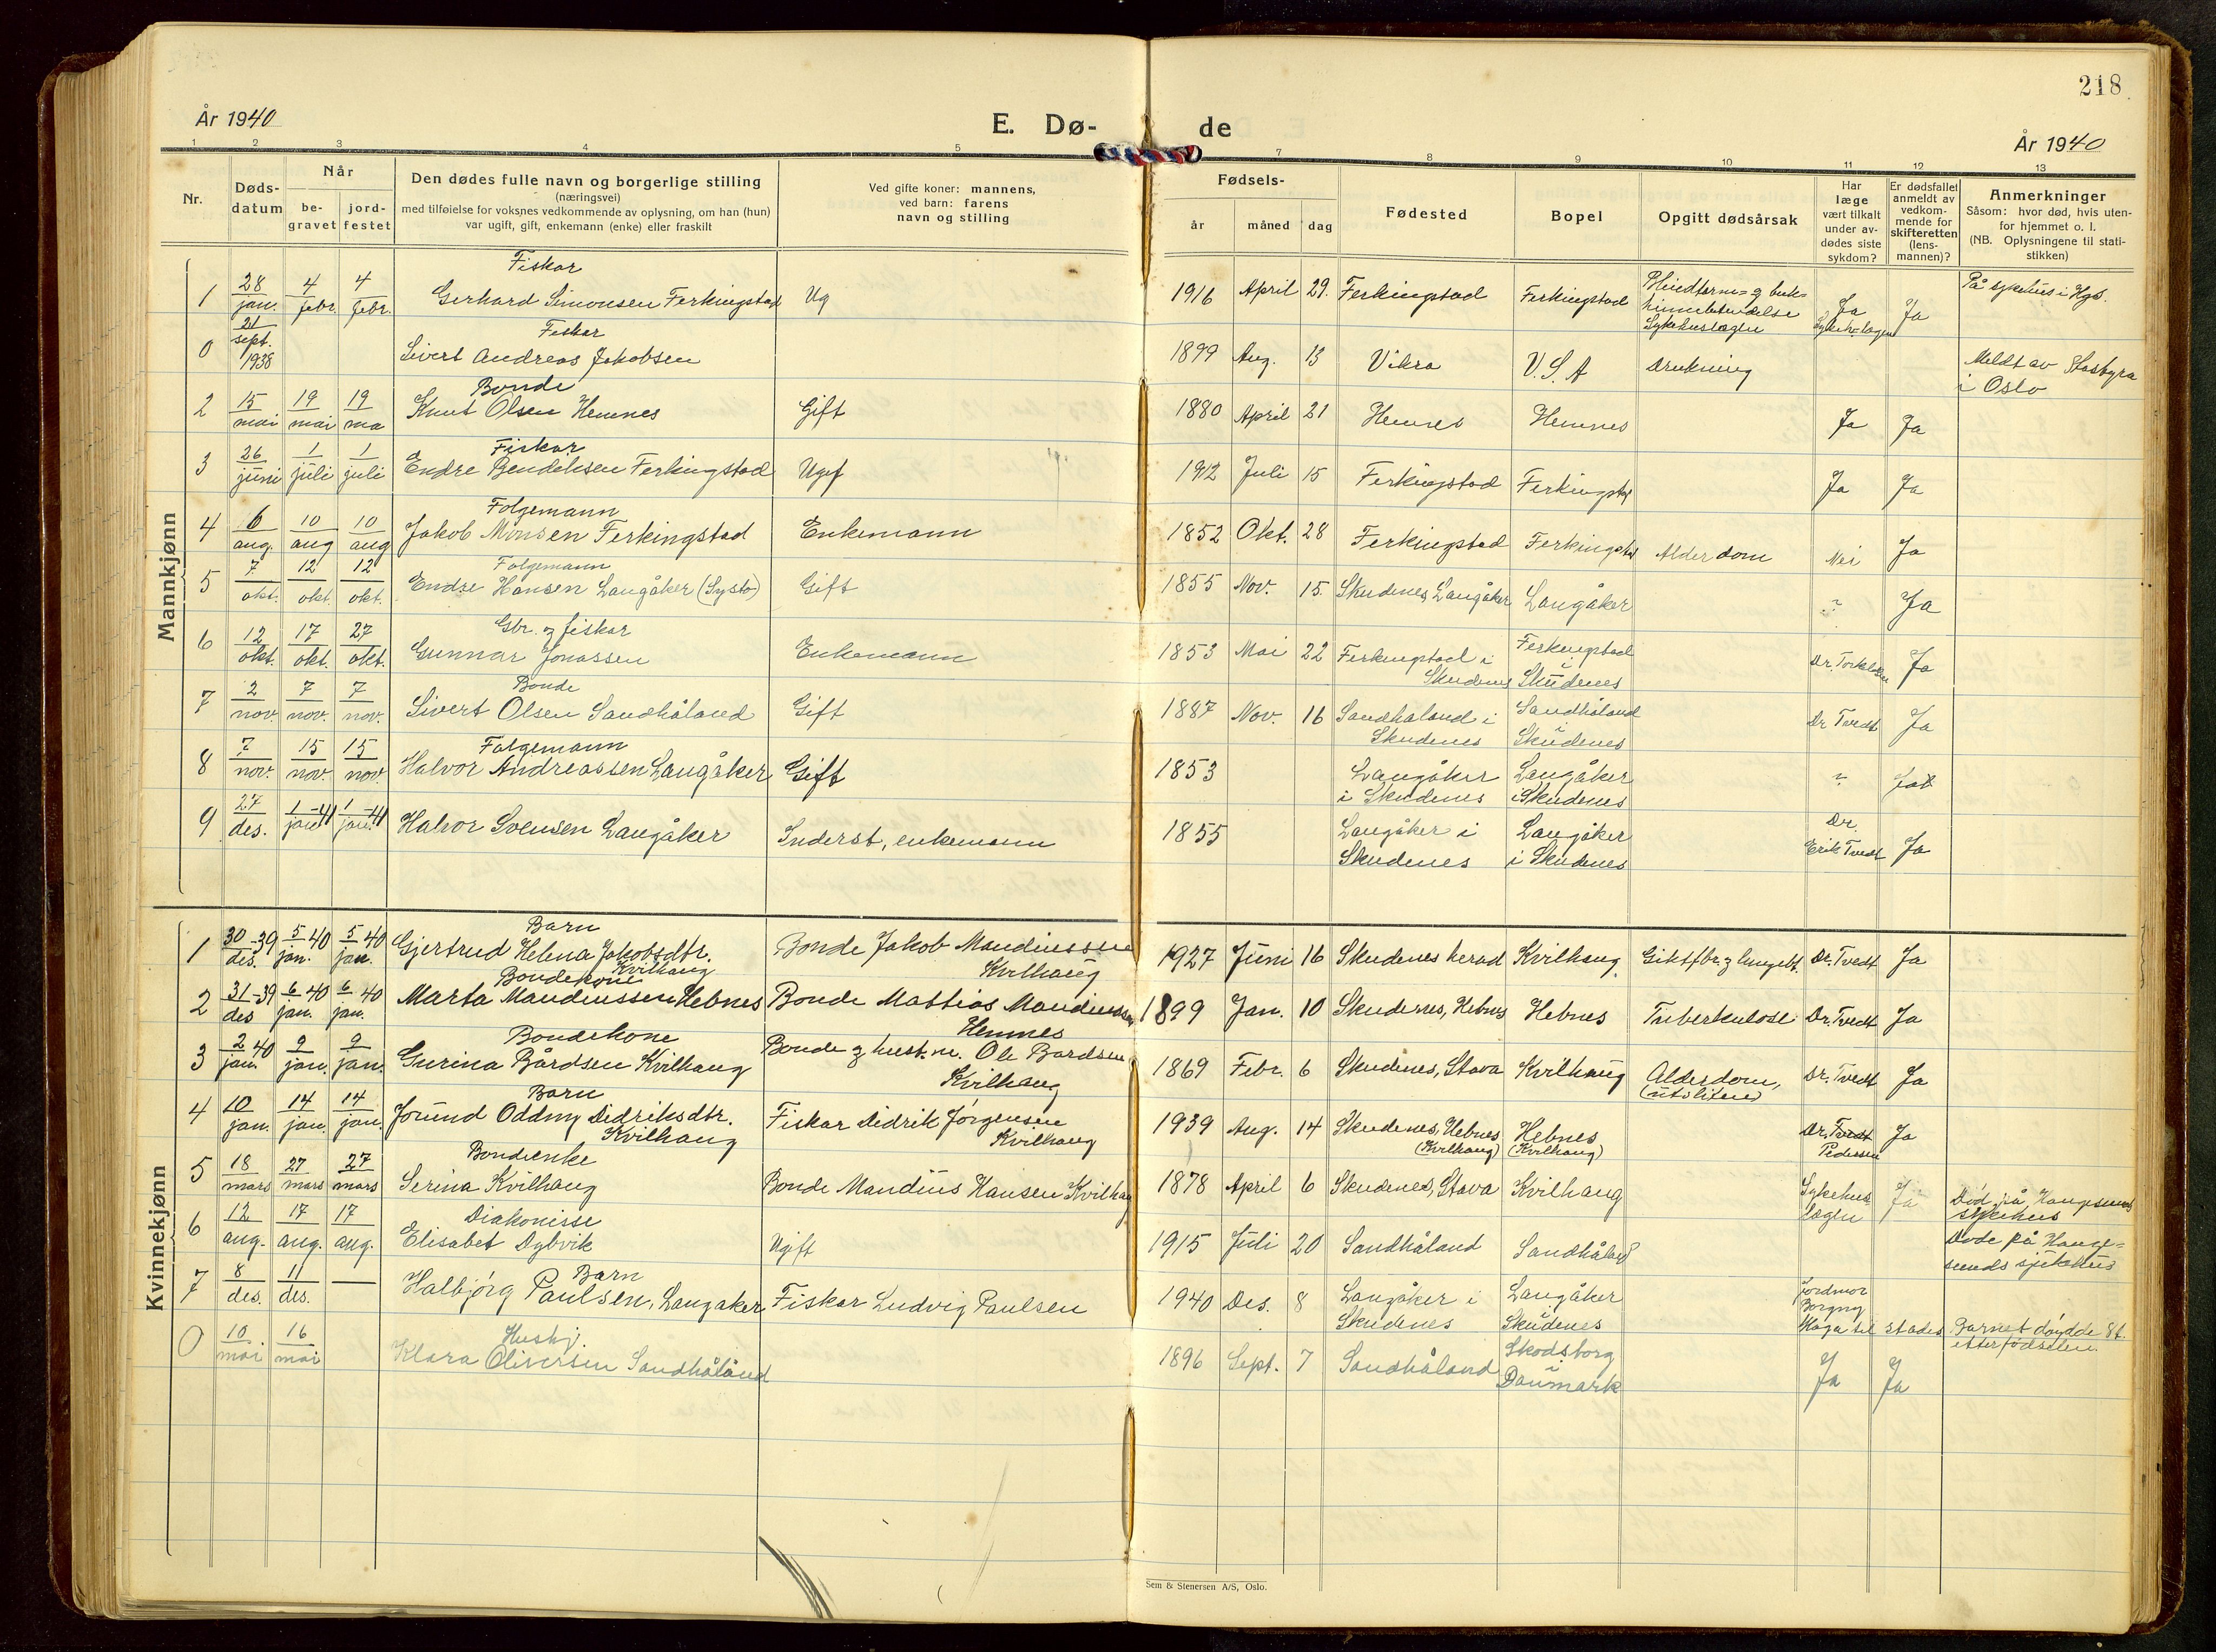 218
År 1940
E. Dø-
de
År 1940
1 2 3 4 5 7 8 9 10 11 12 13
Nr.
Døds-
datum
Når
be-
gravet
jord-
festet
Den dødes fulle navn og borgerlige stilling
(næringsvei)
med tilføielse for voksnes vedkommende av oplysning, om han (hun)
var ugift, gift, enkemann (enke) eller fraskilt
Ved gifte koner: mannens,
ved barn: farens
navn og stilling
Fødsels-
år
måned
dag
Fødested
Bopel
Opgitt dødsårsak
Har
læge
vært tilkalt
under av-
dødes siste
sykdom?
Er dødsfallet
anmeldt av
vedkom-
mende for
skifteretten
(lens-
mannen)?
Anmerkninger
Såsom: hvor død, hvis uten-
for hjemmet o. l.
(NB. Oplysningene til stati-
stikken)
Mannkjønn
Fiskar
1 28 jan. 4 febr. 4 febr. Gerhard Simonsen Ferkingstad Ug 1916 April 29. Ferkingstad Ferkingstad Blindtarm= og buk=
hinnebetendelse
Sykehuslægen Ja Ja På sykehus i Hgs.
Fiskar
0 21 sept. 1938 Sivert Andreas Jakobsen 1899 Aug. 13 Vikra U.S.A Drukning Meldt av
i Oslo
Bonde
2 15 mai 19 mai 19 ma Knut Olsen Hemnes Gift 1880 April 21 Hemnes Hemnes Ja Ja
Fiskar
3 26 juni 1 juli 1 juli Endre Bendiksen Ferkingstad Ugif 1912 Juli 15 Ferkingstad Ferkingstad Ja Ja
Folgemann
4 6 aug. 10 aug 10 aug Jakob Monsen Ferkingstad Enkemann 1852 Okt. 28 Ferkingstad Ferkingstad Alderdom Nei Ja
Folgemann
5 7 okt. 12 okt. 12 okt. Endre Hansen Langåker (Systo) Gift 1855 Nov. 15. Skudenes, Langåker Langåker ? Ja
Gbr. og fiskar
6 12 okt. 17 okt. 27 okt. Gunnar Jonassen Enkemann 1853 Mai 22 Ferkingstad i
Skudenes Ferkingstad
i
Skudenes Dr. Torkelsen Ja
Bonde
7 2 nov. 7 nov. 7 nov. Sivert Olsen Sandhåland Gift 1887 Nov. 16 Sandhåland i
Skudenes Sandhåland
i
Skudenes Dr Tvedt Ja
Folgemann
8 7 nov. 15 nov. 15 nov Halvor Andreassen Langåker Gift 1853 Langåker
i Skudenes Langåker
i Skudenes ? Ja
9 27 des. 1 jan -41 1 jan. -41 Halvor Svensen Langåker Inderst, enkemann 1855 Langåker i
Skudenes Langåker
i Skudenes Dr.
Erik Tvedt Ja
Kvinnekjønn
Barn
1 30 des. -39 5 jan. 40 5 jan. 40 Gjertrud Helena Jakobsdtr.
Kvilhaug Bonde Jakob Maudiussen
Kvilhaug 1927 Juni 16 Skudenes herad Kvilhaug Giktfbr. og lungebt. Dr. Tvedt Ja
Bondekone
2 31 des -39 6 jan. 40 6 jan. 40 Marta Maudiussen Hebnes Bonde Mattias Maudiussen
Hemnes 1899 Jan. 10 Skudenes, Hebnes Hebnes Tuberkulose Dr. Tvedt Ja
Bondekone
3 2 jan. 40 9 jan. 9 jan. Gurina Bårdsen Kvilhaug Bonde og hust.m. Ole Bardsen
Kvilhaug 1869 Febr. 6 Skudenes, Stava Kvilhaug Alderdom,
(utsliten) Dr. Tvedt Ja
Barn
4 10 jan. 14 jan. 14 jan. Jorund Oddny Didriksdtr.
Kvilhaug Fiskar Didrik Jørgensen
Kvilhaug 1939 Aug. 14 Skudenes, Hebnes
(Kvilhaug) Hebnes
(Kvilhaug) Dr. Tvedt
Pedersen Ja
Bondeenke
5 18 mars 27 mars 27 mars Serina Kvilhaug Bonde Maudius Hansen Kvilhaug 1878 April 6 Skudenes, Stava Kvilhaug Sykehus
lægen Ja Død på Haugesunds
sykehus
Diakonisse
6 12 aug. 17 aug. 17 aug. Elisabet Dybvik Ugift 1915 Juli 20 Sandhåland Sandhåland Døde på Hauge=
sunds sjukehus
Barn
7 8 des. 11 des. — Halbjørg Paulsen, Langaker Fiskar Ludvig Paulsen 1940 Des. 8 Langåker i
Skudenes Langåker
i
Skudenes Jordmor
Borgny
Haga til stades Barnet døydde 8 t.
etter fødselen.
Hushj.
0 10 mai 16 mai Klara Oliversen Sandhåland 1896 Sept. 7 Sandhåland Skodsborg
i
Danmark Ja Ja
Sem & Stenersen A/S, Oslo.